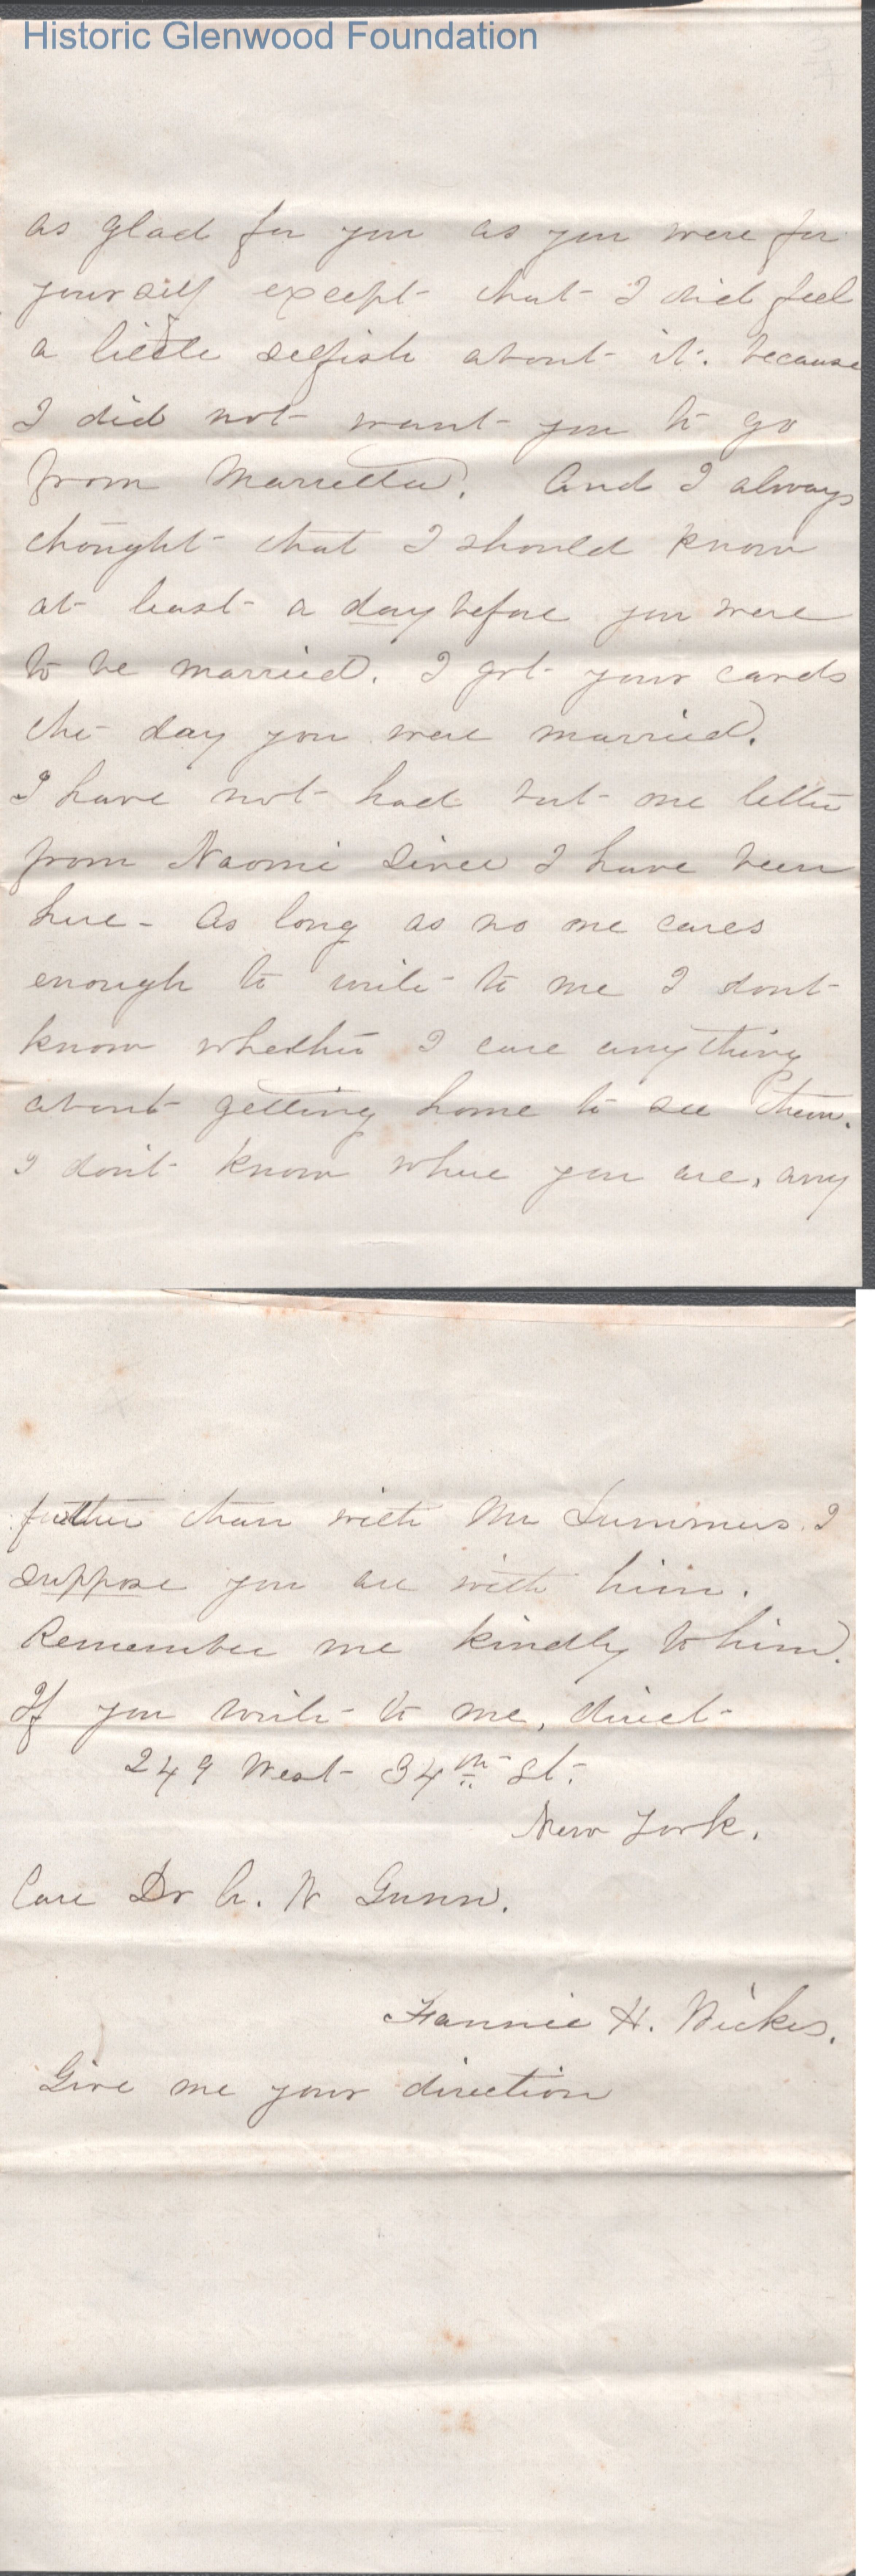 Historic Glenwood Foundation
as glad for you as you were for
yourself except that I did feel
a little selfish about it. because
I did not want you to go
from Marietta. And I always
thought that I should know
at least a day before you were
to be married. I got your cards
the day you were married.
I have not had but one letter
from Naomi since I have been
here - As long as no one cares
enough to write to me I dont
know whether I care anything
about getting home to see them.
I don't know where you are, any
further than with Mr I
suppose you are with him.
Remember me kindly to him.
If you write to me, direct
249 West 34th St.
New York.
Care Dr W Gunn.
Fannie H. Wickes.
Give me your direction